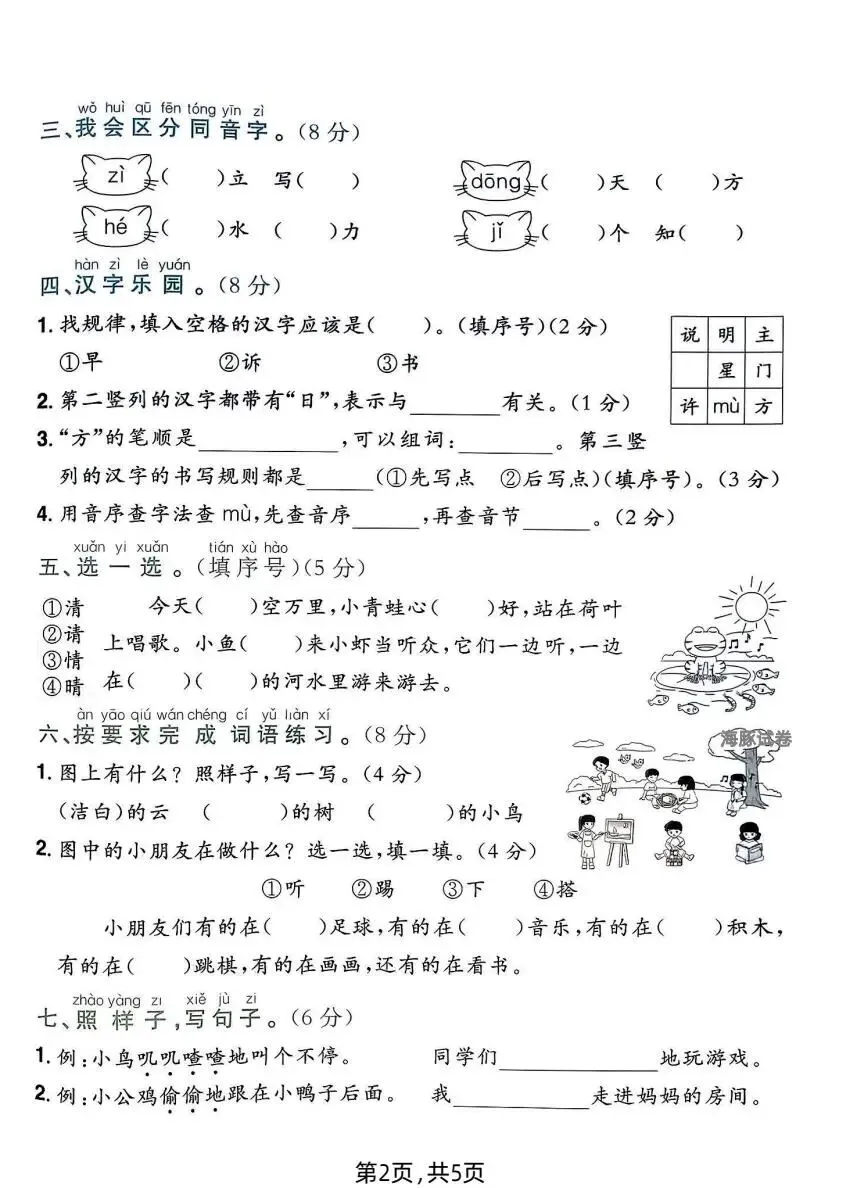 wǒ huì qū fēn tóng yīn zì
三、我会区分同音字。（8分）
zì（　　）立　写（　　）　　dōng（　　）天　（　　）方
hé（　　）水　（　　）力　　jǐ（　　）个　知（　　）
hàn zì lè yuán
四、汉字乐园。（8分）
1. 找规律，填入空格的汉字应该是（　　）。（填序号）（2分）
①早　　②诉　　③书
说 明 主
星 门
许 mù 方
2. 第二竖列的汉字都带有“日”，表示与________有关。（1分）
3. “方”的笔顺是____________，可以组词：________。第三竖
列的汉字的书写规则都是______（①先写点　②后写点）（填序号）。（3分）
4. 用音序查字法查 mù，先查音序______，再查音节______。（2分）
xuǎn yi xuǎn　tián xù hào
五、选一选。（填序号）（5分）
①清　　今天（　　）空万里，小青蛙心（　　）好，站在荷叶
②请　上唱歌。小鱼（　　）来小虾当听众，它们一边听，一边
③情
④晴　在（　　）（　　）的河水里游来游去。
àn yāo qiú wán chéng cí yǔ liàn xí
六、按要求完成词语练习。（8分）
海豚试卷
1. 图上有什么？照样子，写一写。（4分）
（洁白）的云　（　　）的树　（　　）的小鸟
2. 图中的小朋友在做什么？选一选，填一填。（4分）
①听　　②踢　　③下　　④搭
小朋友们有的在（　　）足球，有的在（　　）音乐，有的在（　　）积木，
有的在（　　）跳棋，有的在画画，还有的在看书。
zhào yàng zi　xiě jù zi
七、照样子，写句子。（6分）
1. 例：小鸟叽叽喳喳地叫个不停。　　同学们______________地玩游戏。
2. 例：小公鸡偷偷地跟在小鸭子后面。　　我____________走进妈妈的房间。
第2页，共5页